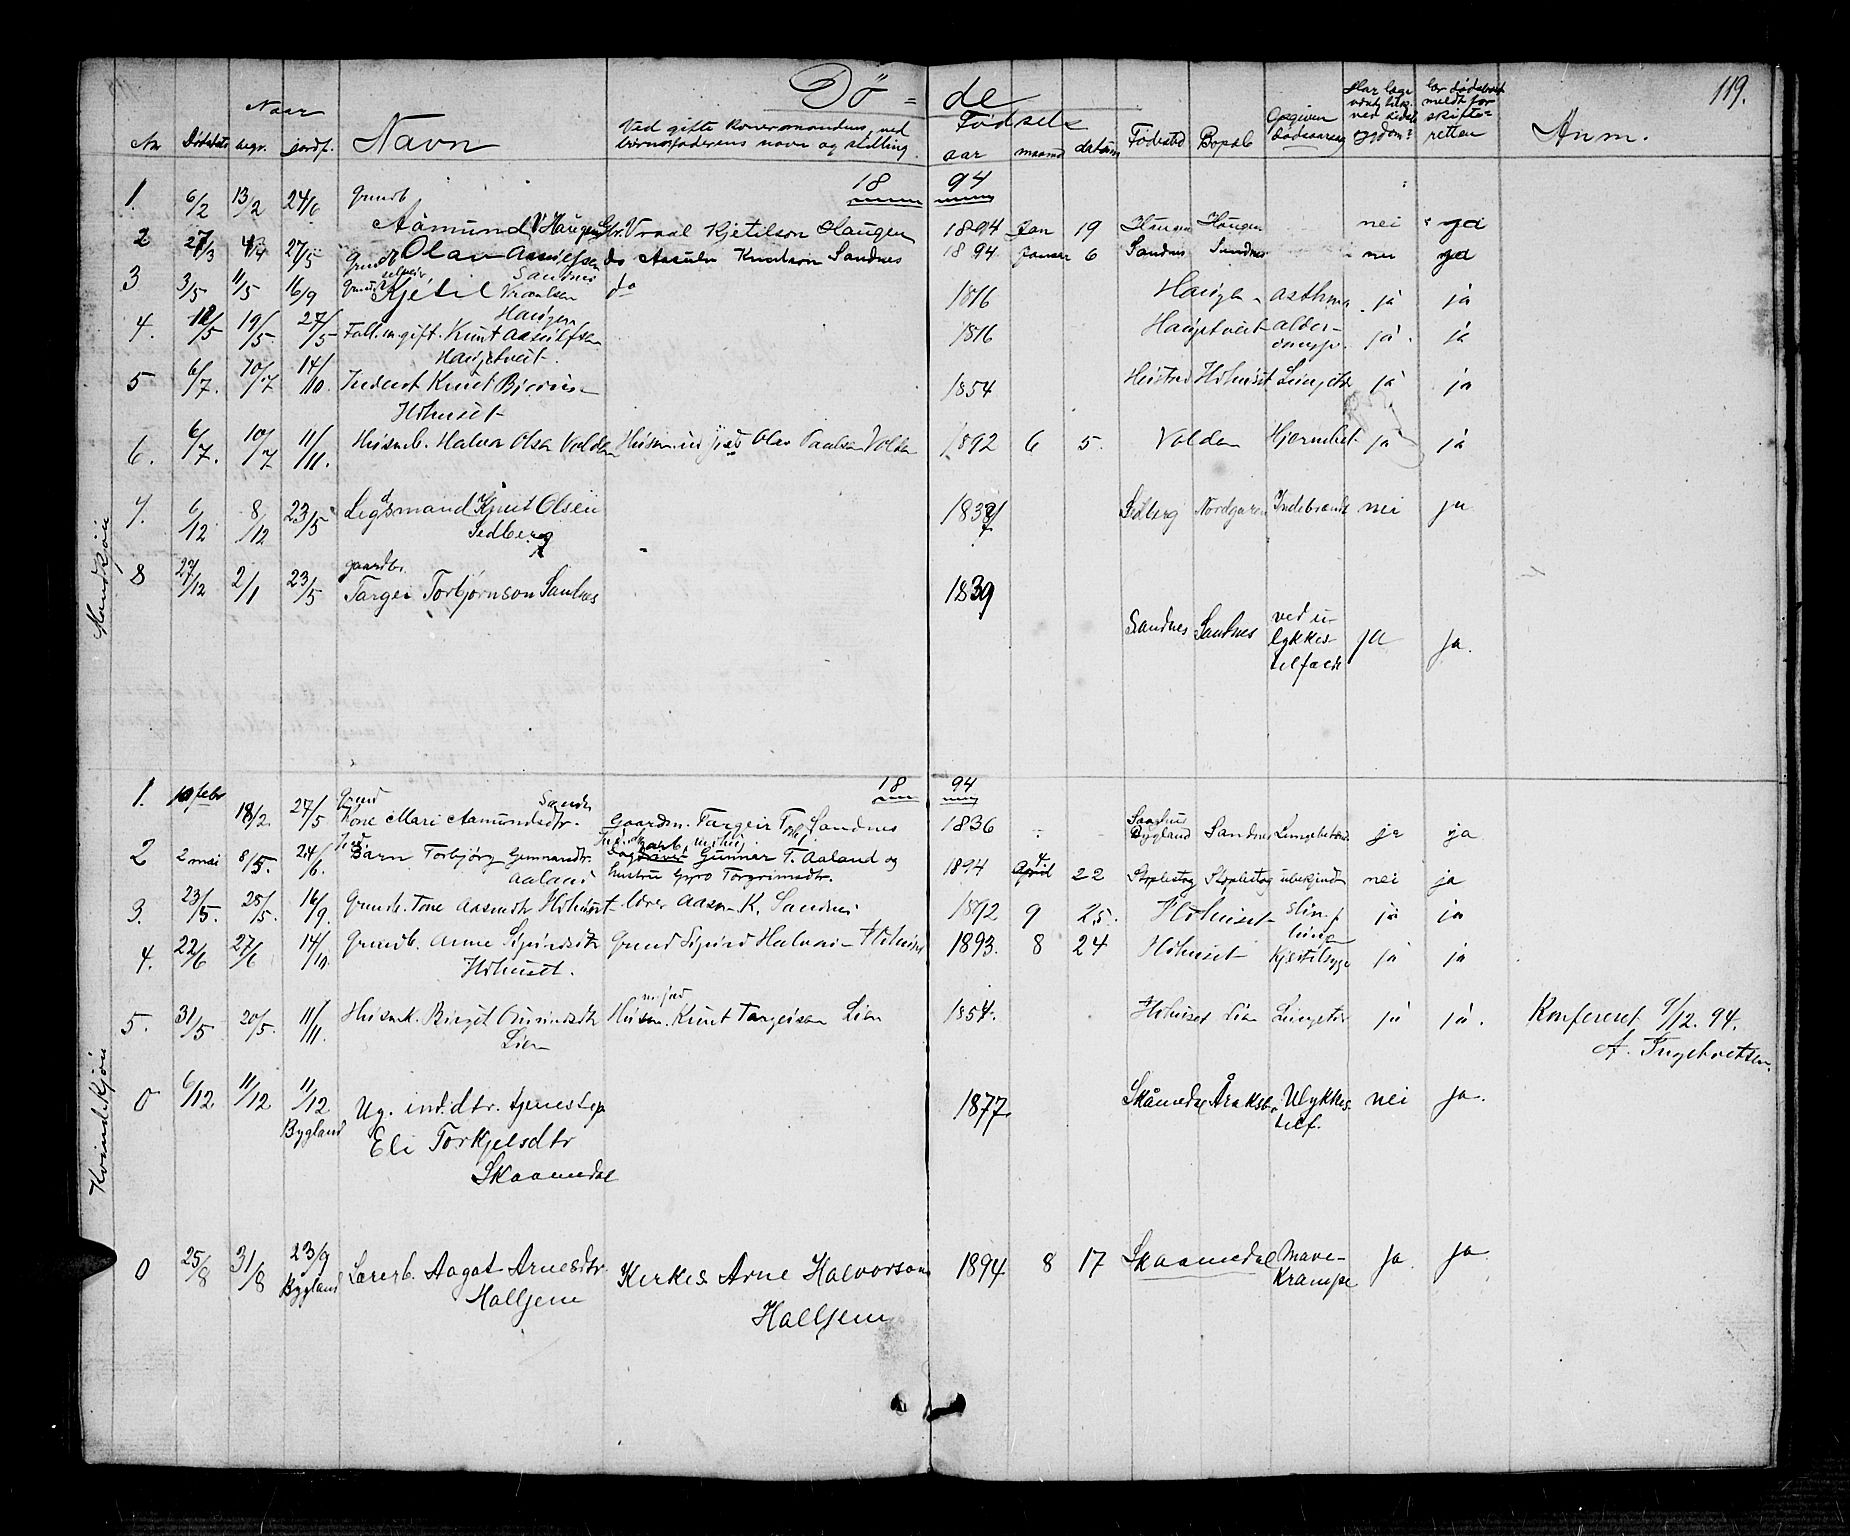 Dö = de
119.
Naar
Födsels
No Dödsdato begr. jordf. Navn
Ved gifte koner mandens, ved börn faderens navn og stilling.
aar maaned datum Födested Bopæl
Opgiven dödsaarsag
Har læge været tilst. ved sidste sygdom?
Er dödsfald meldt for skifteretten
Anm.
Mandkjön
18 94
1. 6/2 13/2 24/6 Gundb. Aamund V Haugen Gbr. Vraal Kjetilson Haugen 1894 Jan 19 Haugen Haugen nei ja
2 27/3 27/5 Gundb Olav Aasulfsen Sandnes do Aasulv Knutson Sandnes 1894 Januar 6 Sandnes Sandnes nei ja
3 3/5 11/5 16/9 Kjetil Vraalsen Haugen do 1816 Haugen asthma ja ja
4. 12/5 19/5 27/5 Fatt. ugift. Knut Aasulfsen Haugetveit. 1816 Haugetveit alderdoms ja. ja
5 6/7. 10/7 14/10. Inderst Knut Bjørns- Hohuset 1854 Heistad Hohuset Lungebet ja ja
6. 6/7. 10/7 11/11. Husmb. Halvor Olsen Volden Husm. u jord Olav Paulsen Volden 1892 6 5. Volden Hjernebet. ja ja
7. 6/12 8/12 23/5 Legdsmand Knut Olsen Sedberg 183 Sedberg Nordgaren Indebrænde nei ja
8 27/12 2/1 23/5 gaardbr. Targei Torbjørnson Sandnes 1839 Sandnes Sandnes ved ulykkestilfælde ja ja.
Kvindekjön
18 94
1. 10 febr 18/2. 27/5 Tone Mari Aamundsdtr. Sandn Gaardm. Targeir Torbj. Sandnes 1836 Bygland Sandnes Lungebetænd. ja ja
2 2 mai 8/5. 24/6. Barn Torbjörg Gunnarsdtr. Aaland Gunnar T. Aaland og hustru Gyro Torgrimsdtr. 1894 4 April 22 Stoplestog Stoplestog ubekjendt nei ja
3. 23/5. 25/5. 16/9. Gundb. Tone Aasmdtr Hohuset lærer Aasm. K. Sandnes 1892 9 25. Hohuset ja ja
4. 22/6 27/6 14/10. Grundb. Anne Sigurdsdtr Hohuset. Grund Sigurd Halvors- Hohuset 1893. 8 24 Hohuset Kjertelsyge ja ja
5. 31/5 20/5. 11/11. Husmk. Birgit Lien Husm. m jord Knut Targeison Lien 1854. Hohuset Lien Lungebet ja ja.
Konfereret 9/12. 94.
A. Ingebretsen.
0 6/12 11/12 11/12 Bygland Ug. ind.dtr. tjenestep Eli Torkjelsdtr Skaamedal 1877. Skåmedal Åraksbø Ulykkes- tilf. nei ja.
0 25/8 31/8 23/9 Bygland Lærerb. Aagot Arnesdtr. Halljem Kirkes Arne Halvorson Halljem 1894 8 17 Skaamedal Mave- krampe ja ja